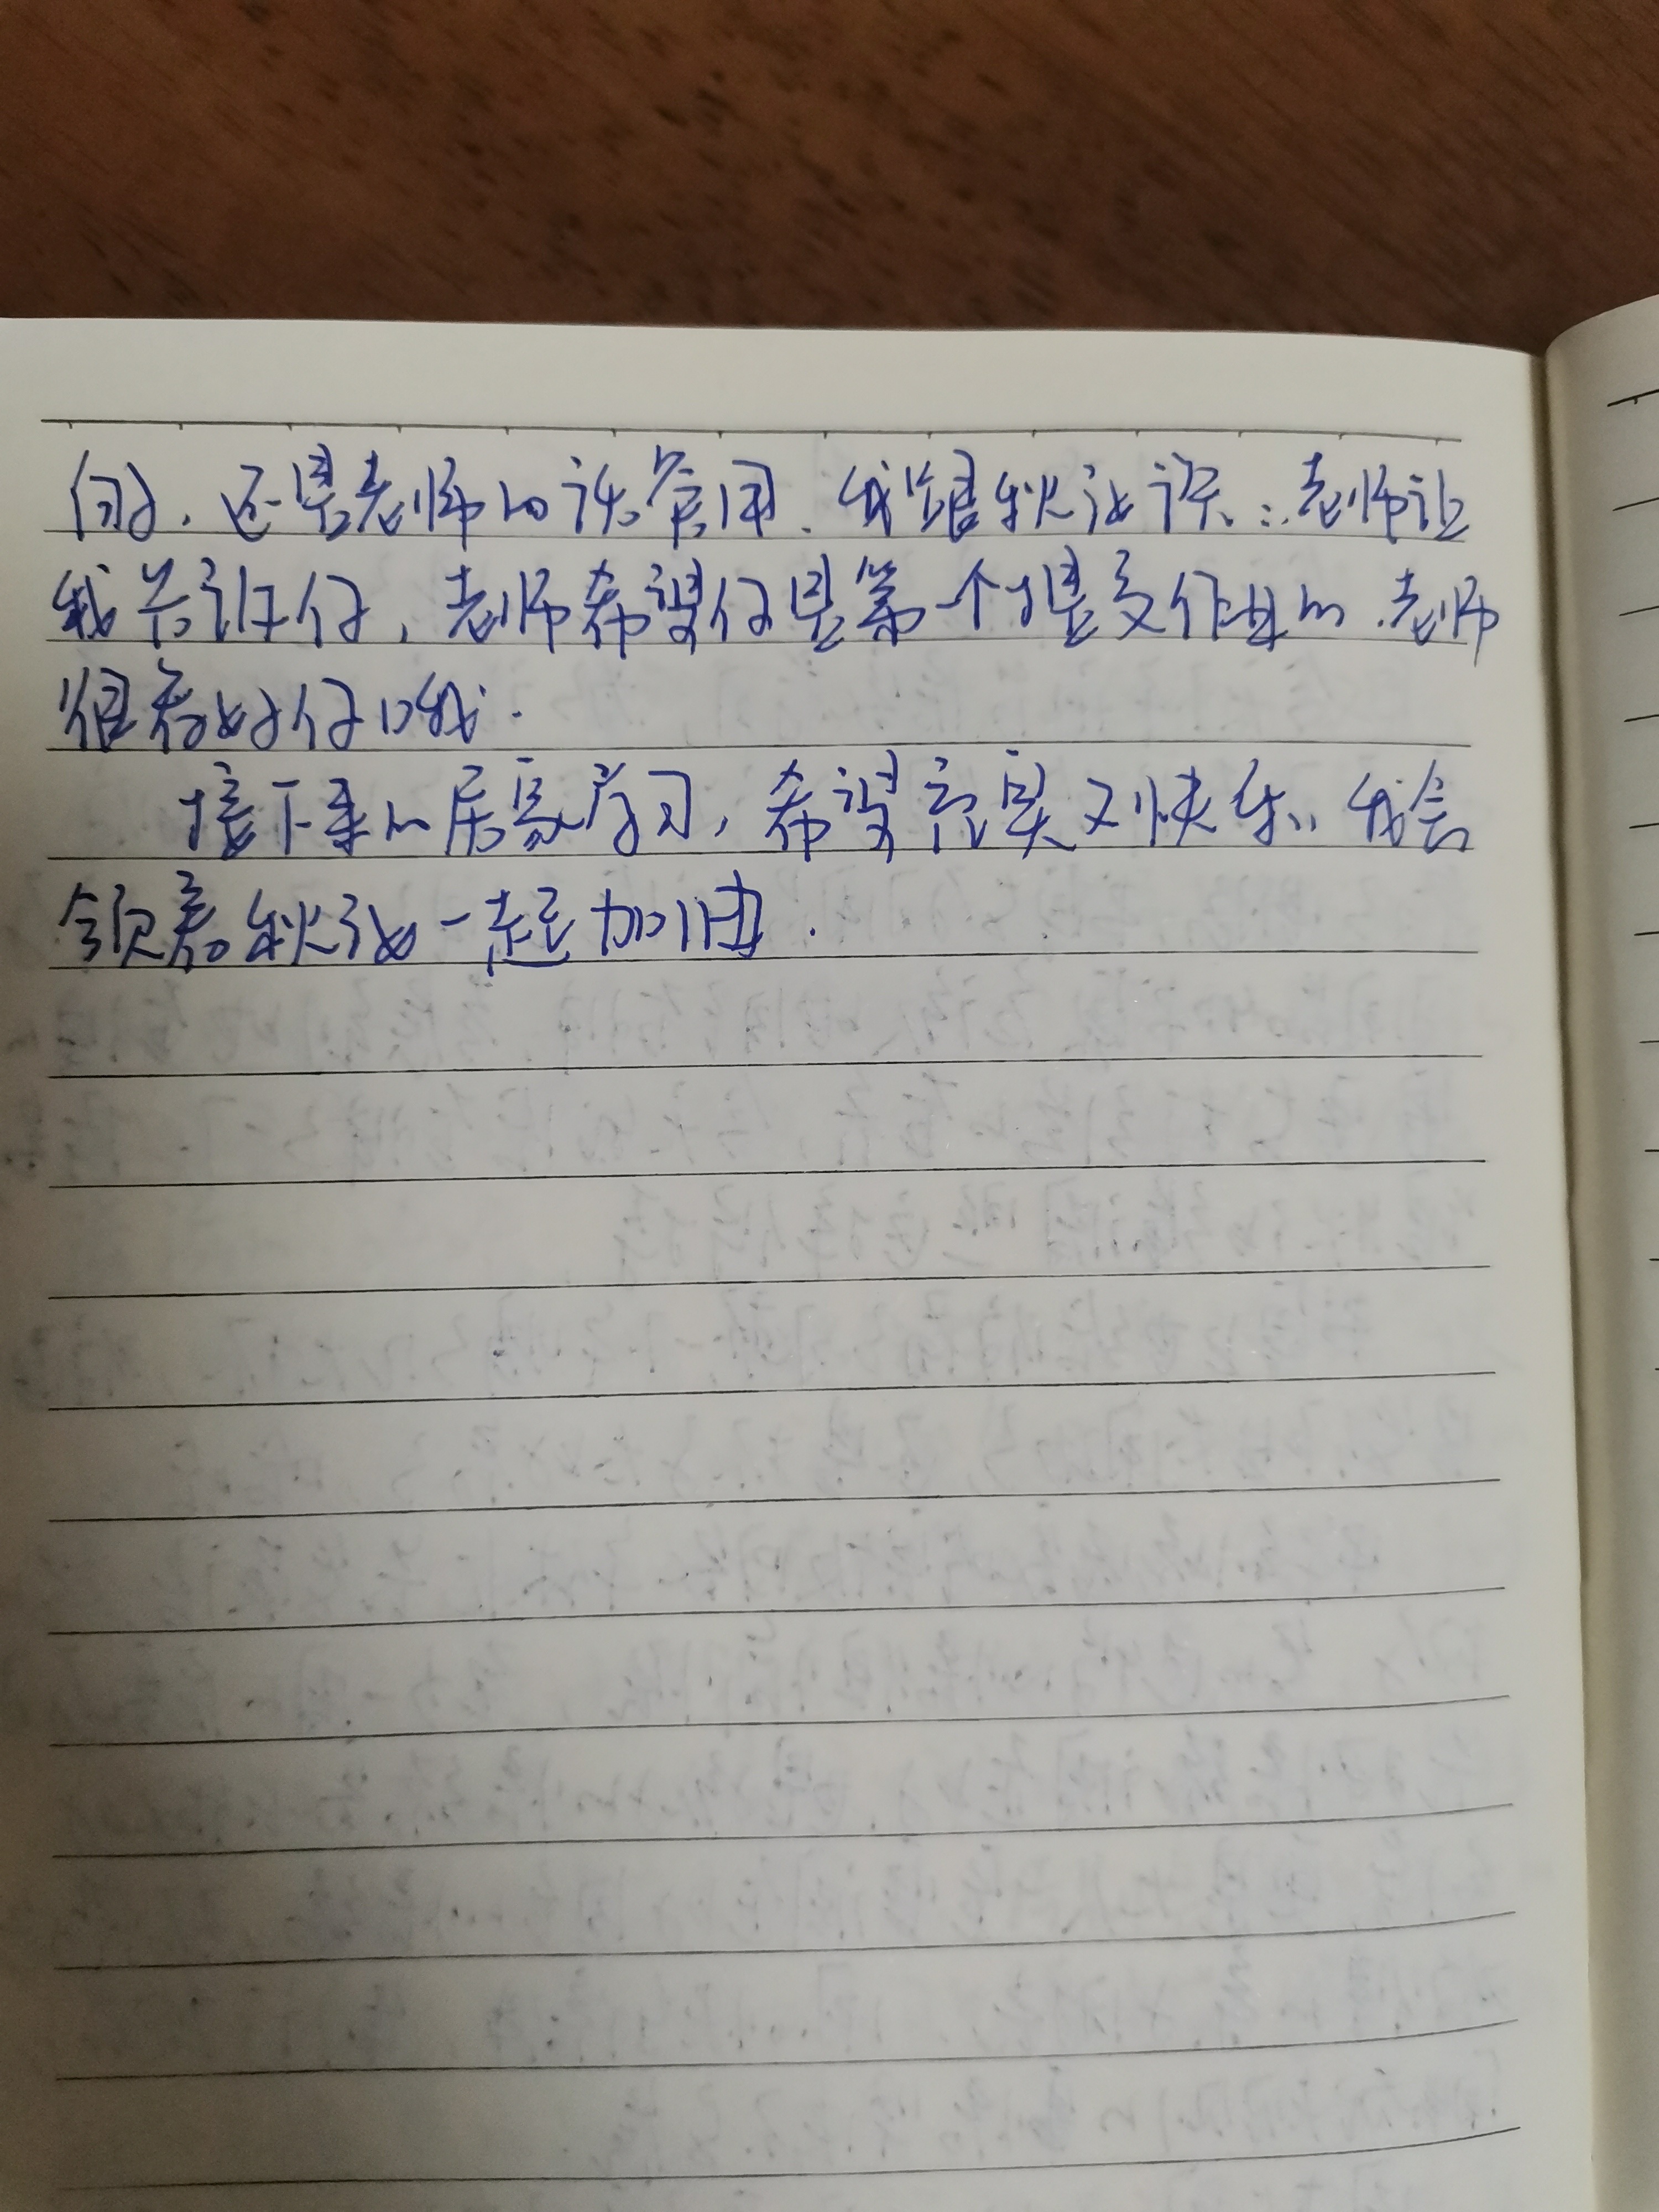 们。还是老师的话管用。我跟秋汝说:老师让
我告诉你,老师希望你是第一个提交作业的.老师
很看好你哦.
接下来的居家学习,希望充实又快乐,我会
领着秋汝一起加油.